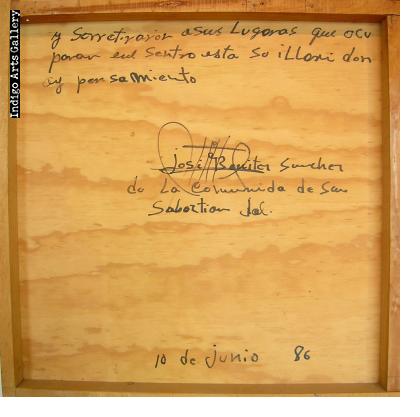 Indigo Arts Gallery
y Sorretiraror asus Lugaras que ocu
paran en el sentro esta so illari don
oy pensamiento
José Benites Sancher
do La comunida de San
Sabortian Jal.
10 de junio 86